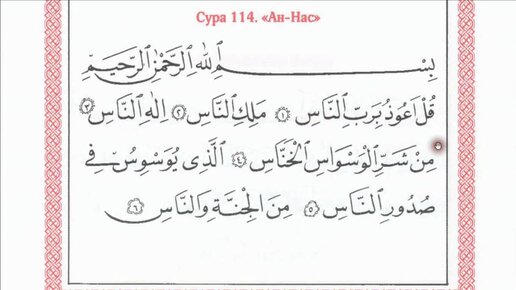 Сура 114. «Ан-Нас»
بِسْمِ اللهِ الرَّحْمٰنِ الرَّحِيمِ
قُلْ اَعُوذُ بِرَبِّ النَّاسِ ۝١ مَلِكِ النَّاسِ ۝٢ اِلٰهِ النَّاسِ ۝٣
مِنْ شَرِّ الْوَسْوَاسِ الْخَنَّاسِ ۝٤ اَلَّذِى يُوَسْوِسُ فِى
صُدُورِ النَّاسِ ۝٥ مِنَ الْجِنَّةِ وَالنَّاسِ ۝٦